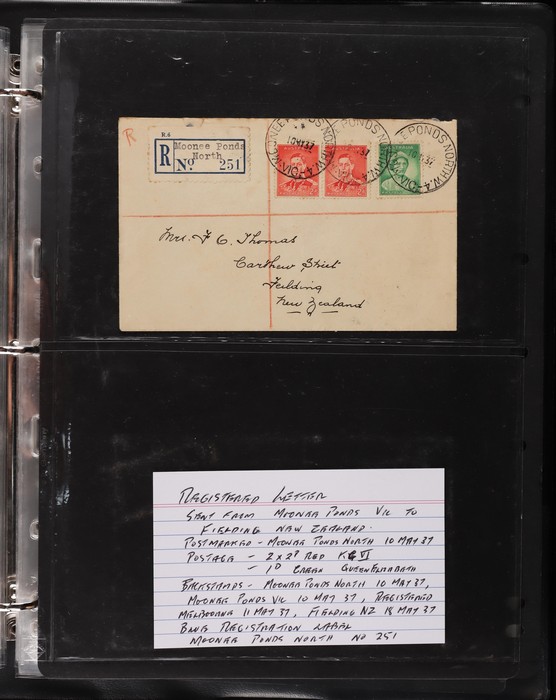 R
R.6
Moonee Ponds
North
R No 251
MOONEE PONDS NORTH W.4-VIC
10MY37
PONDS NORTH W.4
37
PONDS NORTH W.4-VIC
37
Mrs. F C. Thomas
Carthew Street
Feilding
New Zealand
REGISTERED LETTER
SENT FROM MOONEE PONDS VIC TO
FIELDING NEW ZEALAND.
POSTMARKED - MOONEE PONDS NORTH 10 MAY 37
POSTAGE - 2 x 2D RED KG VI
- 1D GREEN QUEEN ELIZABETH
BACKSTAMPS - MOONEE PONDS NORTH 10 MAY 37,
MOONEE PONDS VIC 10 MAY 37, REGISTERED
MELBOURNE 11 MAY 37, FIELDING NZ 18 MAY 37
BLUE REGISTRATION LABEL
MOONEE PONDS NORTH NO 251